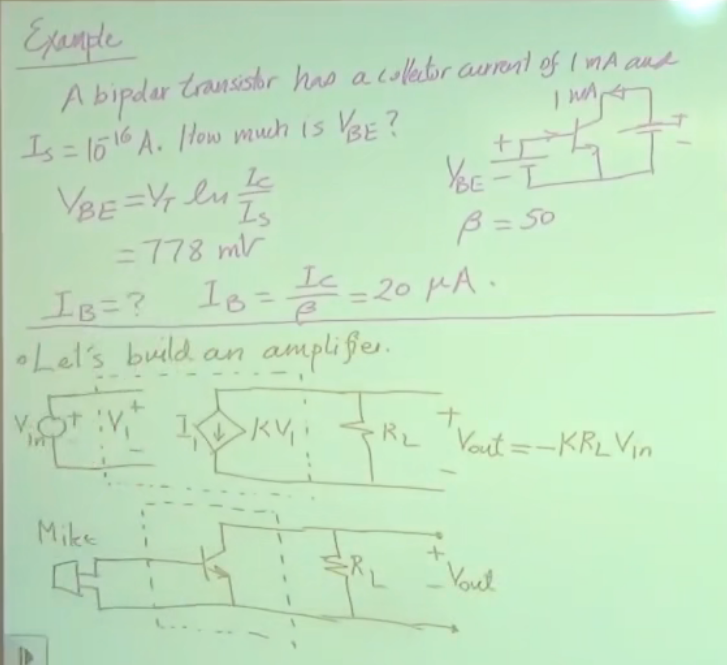 Example
A bipolar transistor has a collector current of 1 mA and
I_S = 10^-16 A. How much is V_BE?
1 mA
V_BE = V_T ln I_C/I_S
+
-
V_BE
+
-
= 778 mV
β = 50
I_B = ? I_B = I_C/β = 20 μA.
• Let's build an amplifier.
V_in + V_1 + - I_1 KV_1 R_L + - V_out = -KR_L V_in
Mike
R_L + - V_out